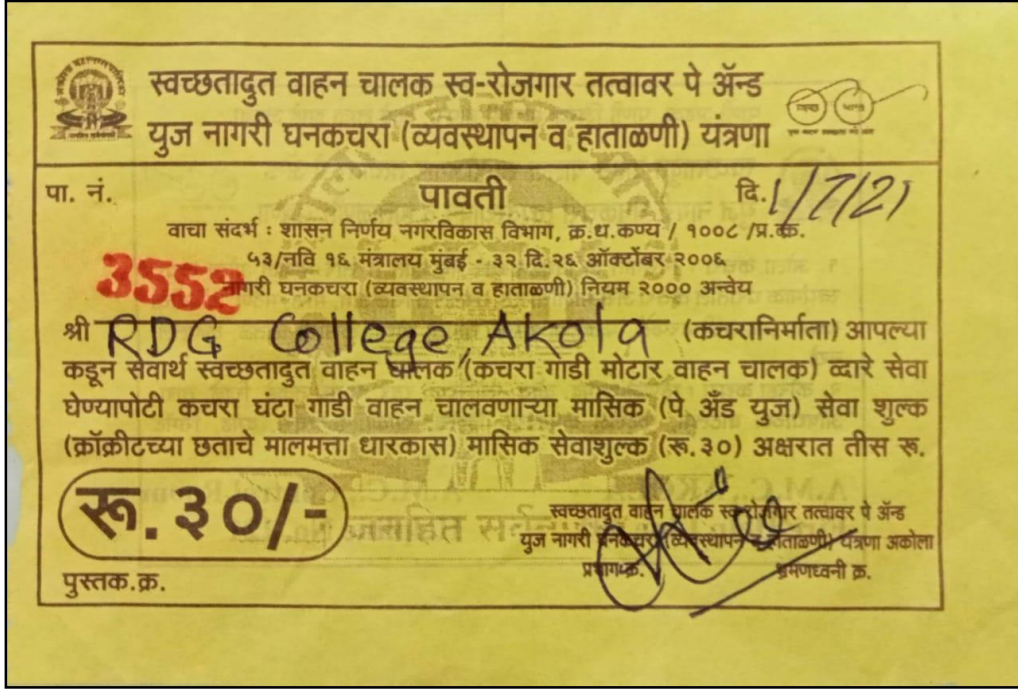 स्वच्छतादुत वाहन चालक स्व-रोजगार तत्वावर पे ॲन्ड
युज नागरी घनकचरा (व्यवस्थापन व हाताळणी) यंत्रणा
पा. नं. पावती दि. 1/7/21
वाचा संदर्भ : शासन निर्णय नगरविकास विभाग, क्र.ध.कण्य / १००८ /प्र.क्र.
५३/नवि १६ मंत्रालय मुंबई - ३२ दि.२६ ऑक्टोंबर २००६
3552 नागरी घनकचरा (व्यवस्थापन व हाताळणी) नियम २००० अन्वेय
श्री RDG College, Akola (कचरानिर्माता) आपल्या
कडून सेवार्थ स्वच्छतादुत वाहन चालक (कचरा गाडी मोटार वाहन चालक) व्दारे सेवा
घेण्यापोटी कचरा घंटा गाडी वाहन चालवणाऱ्या मासिक (पे. अँड युज) सेवा शुल्क
(क्रॉक्रीटच्या छताचे मालमत्ता धारकास) मासिक सेवाशुल्क (रू.३०) अक्षरात तीस रू.
रू. ३०/-
स्वच्छतादुत वाहन चालक स्व-रोजगार तत्वावर पे ॲन्ड
युज नागरी घनकचरा (व्यवस्थापन व हाताळणी) यंत्रणा अकोला
प्रभाग क्र. भ्रमणध्वनी क्र.
पुस्तक.क्र.